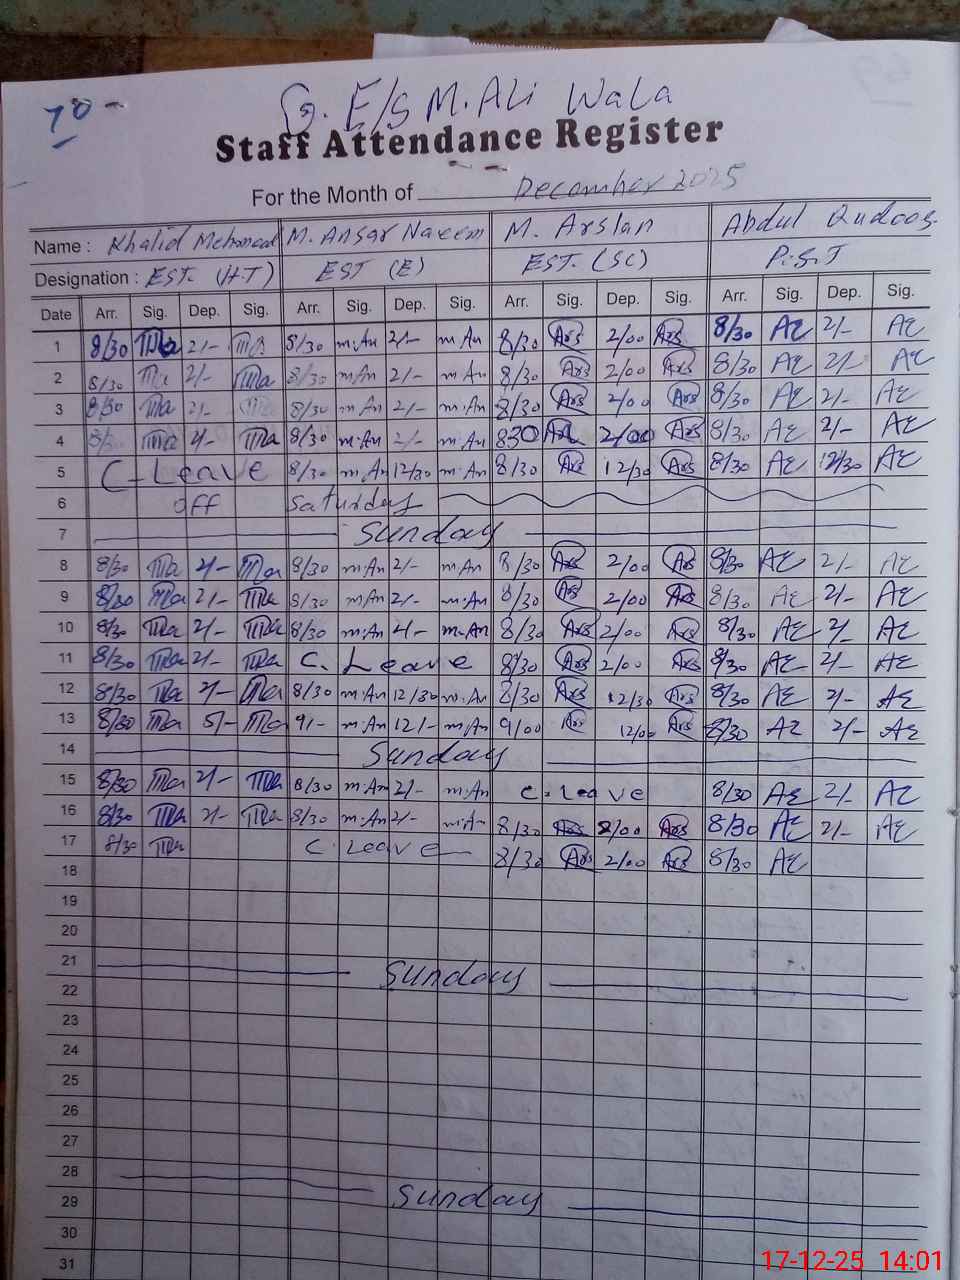 70
G. E/S M. Ali Wala
Staff Attendance Register
For the Month of December 2025
Name : Khalid Mehmood M. Ansar Naeem M. Arslan Abdul Qudoos
Designation : EST. (H.T) EST (E) EST. (SC) P.S.T
Date Arr. Sig. Dep. Sig. Arr. Sig. Dep. Sig. Arr. Sig. Dep. Sig. Arr. Sig. Dep. Sig.
1 8/30 2/- 8/30 m.An 2/- m.An 8/30 Ars 2/00 Ars 8/30 AQ 2/- AQ
2 8/30 2/- 8/30 m.An 2/- m.An 8/30 Ars 2/00 Ars 8/30 AQ 2/- AQ
3 8/30 2/- 8/30 m.An 2/- m.An 8/30 Ars 2/00 Ars 8/30 AQ 2/- AQ
4 2/- 8/30 m.An 2/- m.An 830 2/00 Ars 8/30 AQ 2/- AQ
5 C-Leave 8/30 m.An 12/30 m.An 8/30 Ars 12/30 Ars 8/30 AQ 12/30 AQ
6 off Saturday
7 Sunday
8 8/30 2/- 8/30 m.An 2/- m.An 8/30 Ars 2/00 Ars 8/30 AQ 2/- AQ
9 8/30 2/- 8/30 m.An 2/- m.An 8/30 Ars 2/00 Ars 8/30 AQ 2/- AQ
10 8/30 2/- 8/30 m.An 2/- m.An 8/30 Ars 2/00 Ars 8/30 AQ 2/- AQ
11 8/30 2/- C. Leave 8/30 Ars 2/00 Ars 8/30 AQ 2/- AQ
12 8/30 2/- 8/30 m.An 12/30 m.An 8/30 Ars 12/30 Ars 8/30 AQ 2/- AQ
13 8/30 5/- 9/- m.An 12/- m.An 9/00 Ars 12/00 Ars 8/30 AQ 2/- AQ
14 Sunday
15 8/30 2/- 8/30 m.An 2/- m.An C. Leave 8/30 AQ 2/- AQ
16 8/30 2/- 8/30 m.An 2/- m.An 8/30 Ars 2/00 Ars 8/30 AQ 2/- AQ
17 8/30 C. Leave 8/30 Ars 2/00 Ars 8/30 AQ
18
19
20
21 Sunday
22
23
24
25
26
27
28 Sunday
29
30
31
17-12-25 14:01